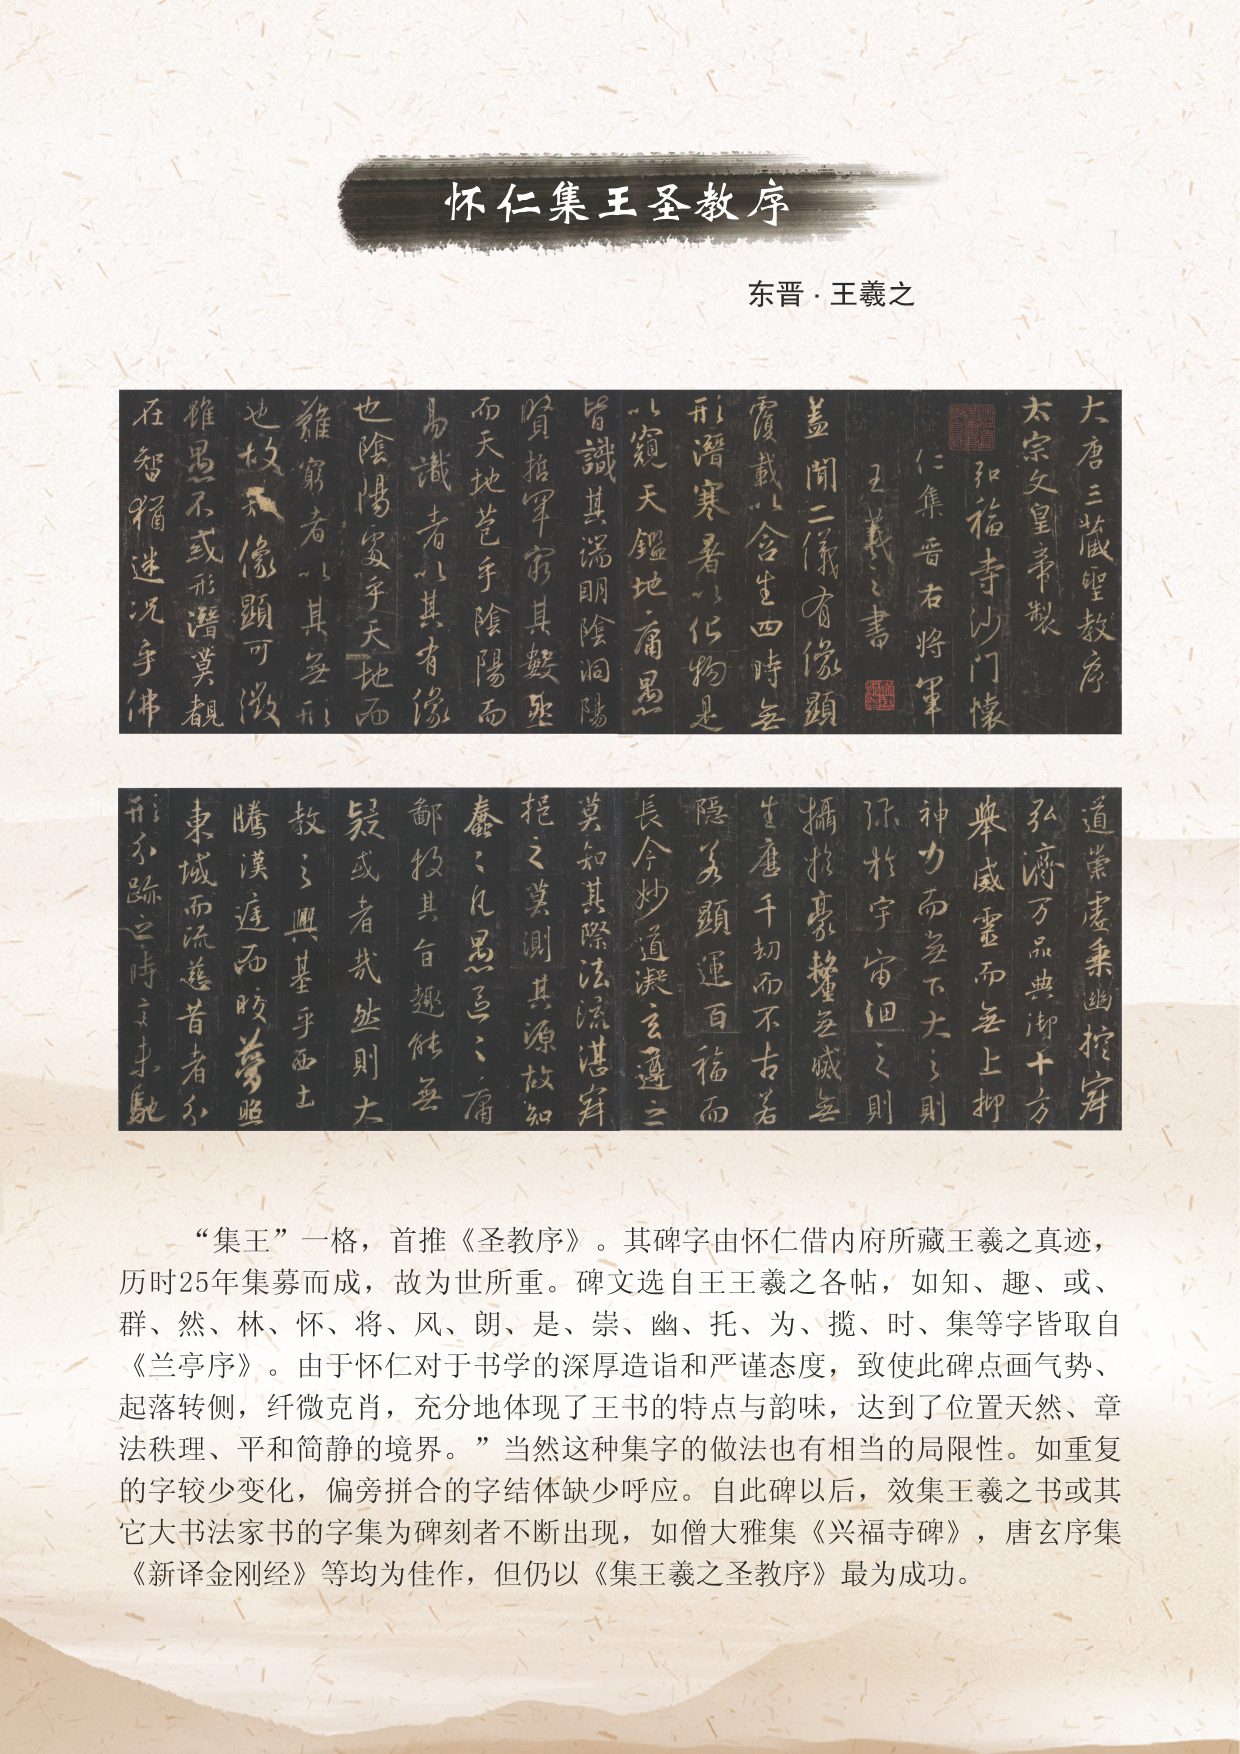 怀仁集王圣教序
东晋·王羲之
大唐三藏聖教序
太宗文皇帝製
弘福寺沙門懷
仁集晋右将軍
王羲之書
蓋聞二儀有像顯
覆載以含生四時無
形潛寒暑以化物是
以窺天鑑地庸愚
皆識其端明陰洞陽
賢哲罕窮其數然
而天地苞乎陰陽而
易識者以其有像
也陰陽處乎天地而
難窮者以其無形
也故知像顯可徵
雖愚不惑形潛莫覩
在智猶迷况乎佛
道崇虛乗幽控寂
弘濟万品典御十方
舉威靈而無上抑
神力而無下大之則
弥於宇宙細之則
攝於豪釐無滅無
生歷千劫而不古若
隱若顯運百福而
長今妙道凝玄遵之
莫知其際法流湛寂
挹之莫測其源故知
蠢蠢凡愚區區庸
鄙投其旨趣能無
疑或者哉然則大
教之興基乎西土
騰漢庭而皎夢照
東域而流慈昔者分
形分跡之時言未馳
“集王”一格，首推《圣教序》。其碑字由怀仁借内府所藏王羲之真迹，
历时25年集募而成，故为世所重。碑文选自王王羲之各帖，如知、趣、或、
群、然、林、怀、将、风、朗、是、崇、幽、托、为、揽、时、集等字皆取自
《兰亭序》。由于怀仁对于书学的深厚造诣和严谨态度，致使此碑点画气势、
起落转侧，纤微克肖，充分地体现了王书的特点与韵味，达到了位置天然、章
法秩理、平和简静的境界。”当然这种集字的做法也有相当的局限性。如重复
的字较少变化，偏旁拼合的字结体缺少呼应。自此碑以后，效集王羲之书或其
它大书法家书的字集为碑刻者不断出现，如僧大雅集《兴福寺碑》，唐玄序集
《新译金刚经》等均为佳作，但仍以《集王羲之圣教序》最为成功。